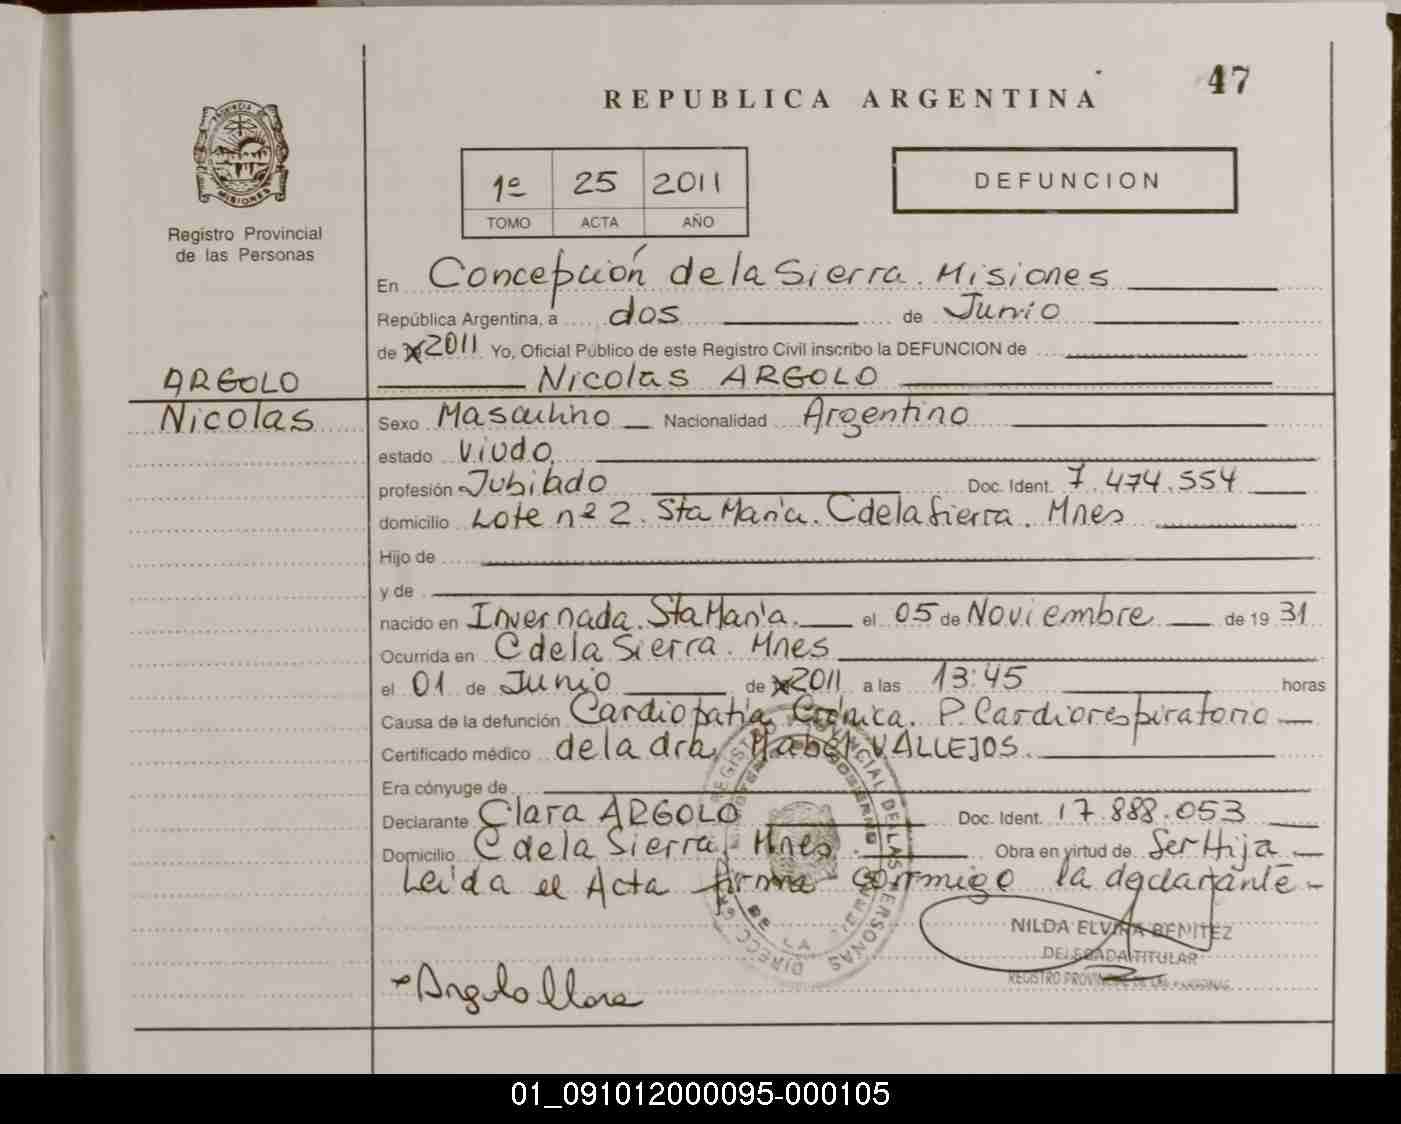 47
REPUBLICA ARGENTINA
PROVINCIA DE
MISIONES
Registro Provincial
de las Personas
1º 25 2011
TOMO ACTA AÑO
DEFUNCION
En Concepción de la Sierra. Misiones
República Argentina, a dos de Junio
de 2011 Yo, Oficial Público de este Registro Civil inscribo la DEFUNCION de
Nicolas ARGOLO
ARGOLO
Nicolas
Sexo Masculino Nacionalidad Argentino
estado Viudo
profesión Jubilado Doc. Ident. 7.474.554
domicilio Lote nº 2. Sta Maria. C de la Sierra. Mnes
Hijo de
y de
nacido en Invernada. Sta Maria. el 05 de Noviembre de 19 31
Ocurrida en C de la Sierra. Mnes
el 01 de Junio de 2011 a las 13:45 horas
Causa de la defunción Cardiopatia Crónica. P. Cardiorespiratorio
Certificado médico de la dra. Mabel VALLEJOS.
Era cónyuge de
Declarante Clara ARGOLO Doc. Ident. 17.888.053
Domicilio C de la Sierra, Mnes Obra en virtud de Ser Hija
Leida el Acta firma conmigo la declarante -
NILDA ELVIRA BENITEZ
DELEGADA TITULAR
REGISTRO PROVINCIAL DE LAS PERSONAS
Argolo Clara
01_091012000095-000105